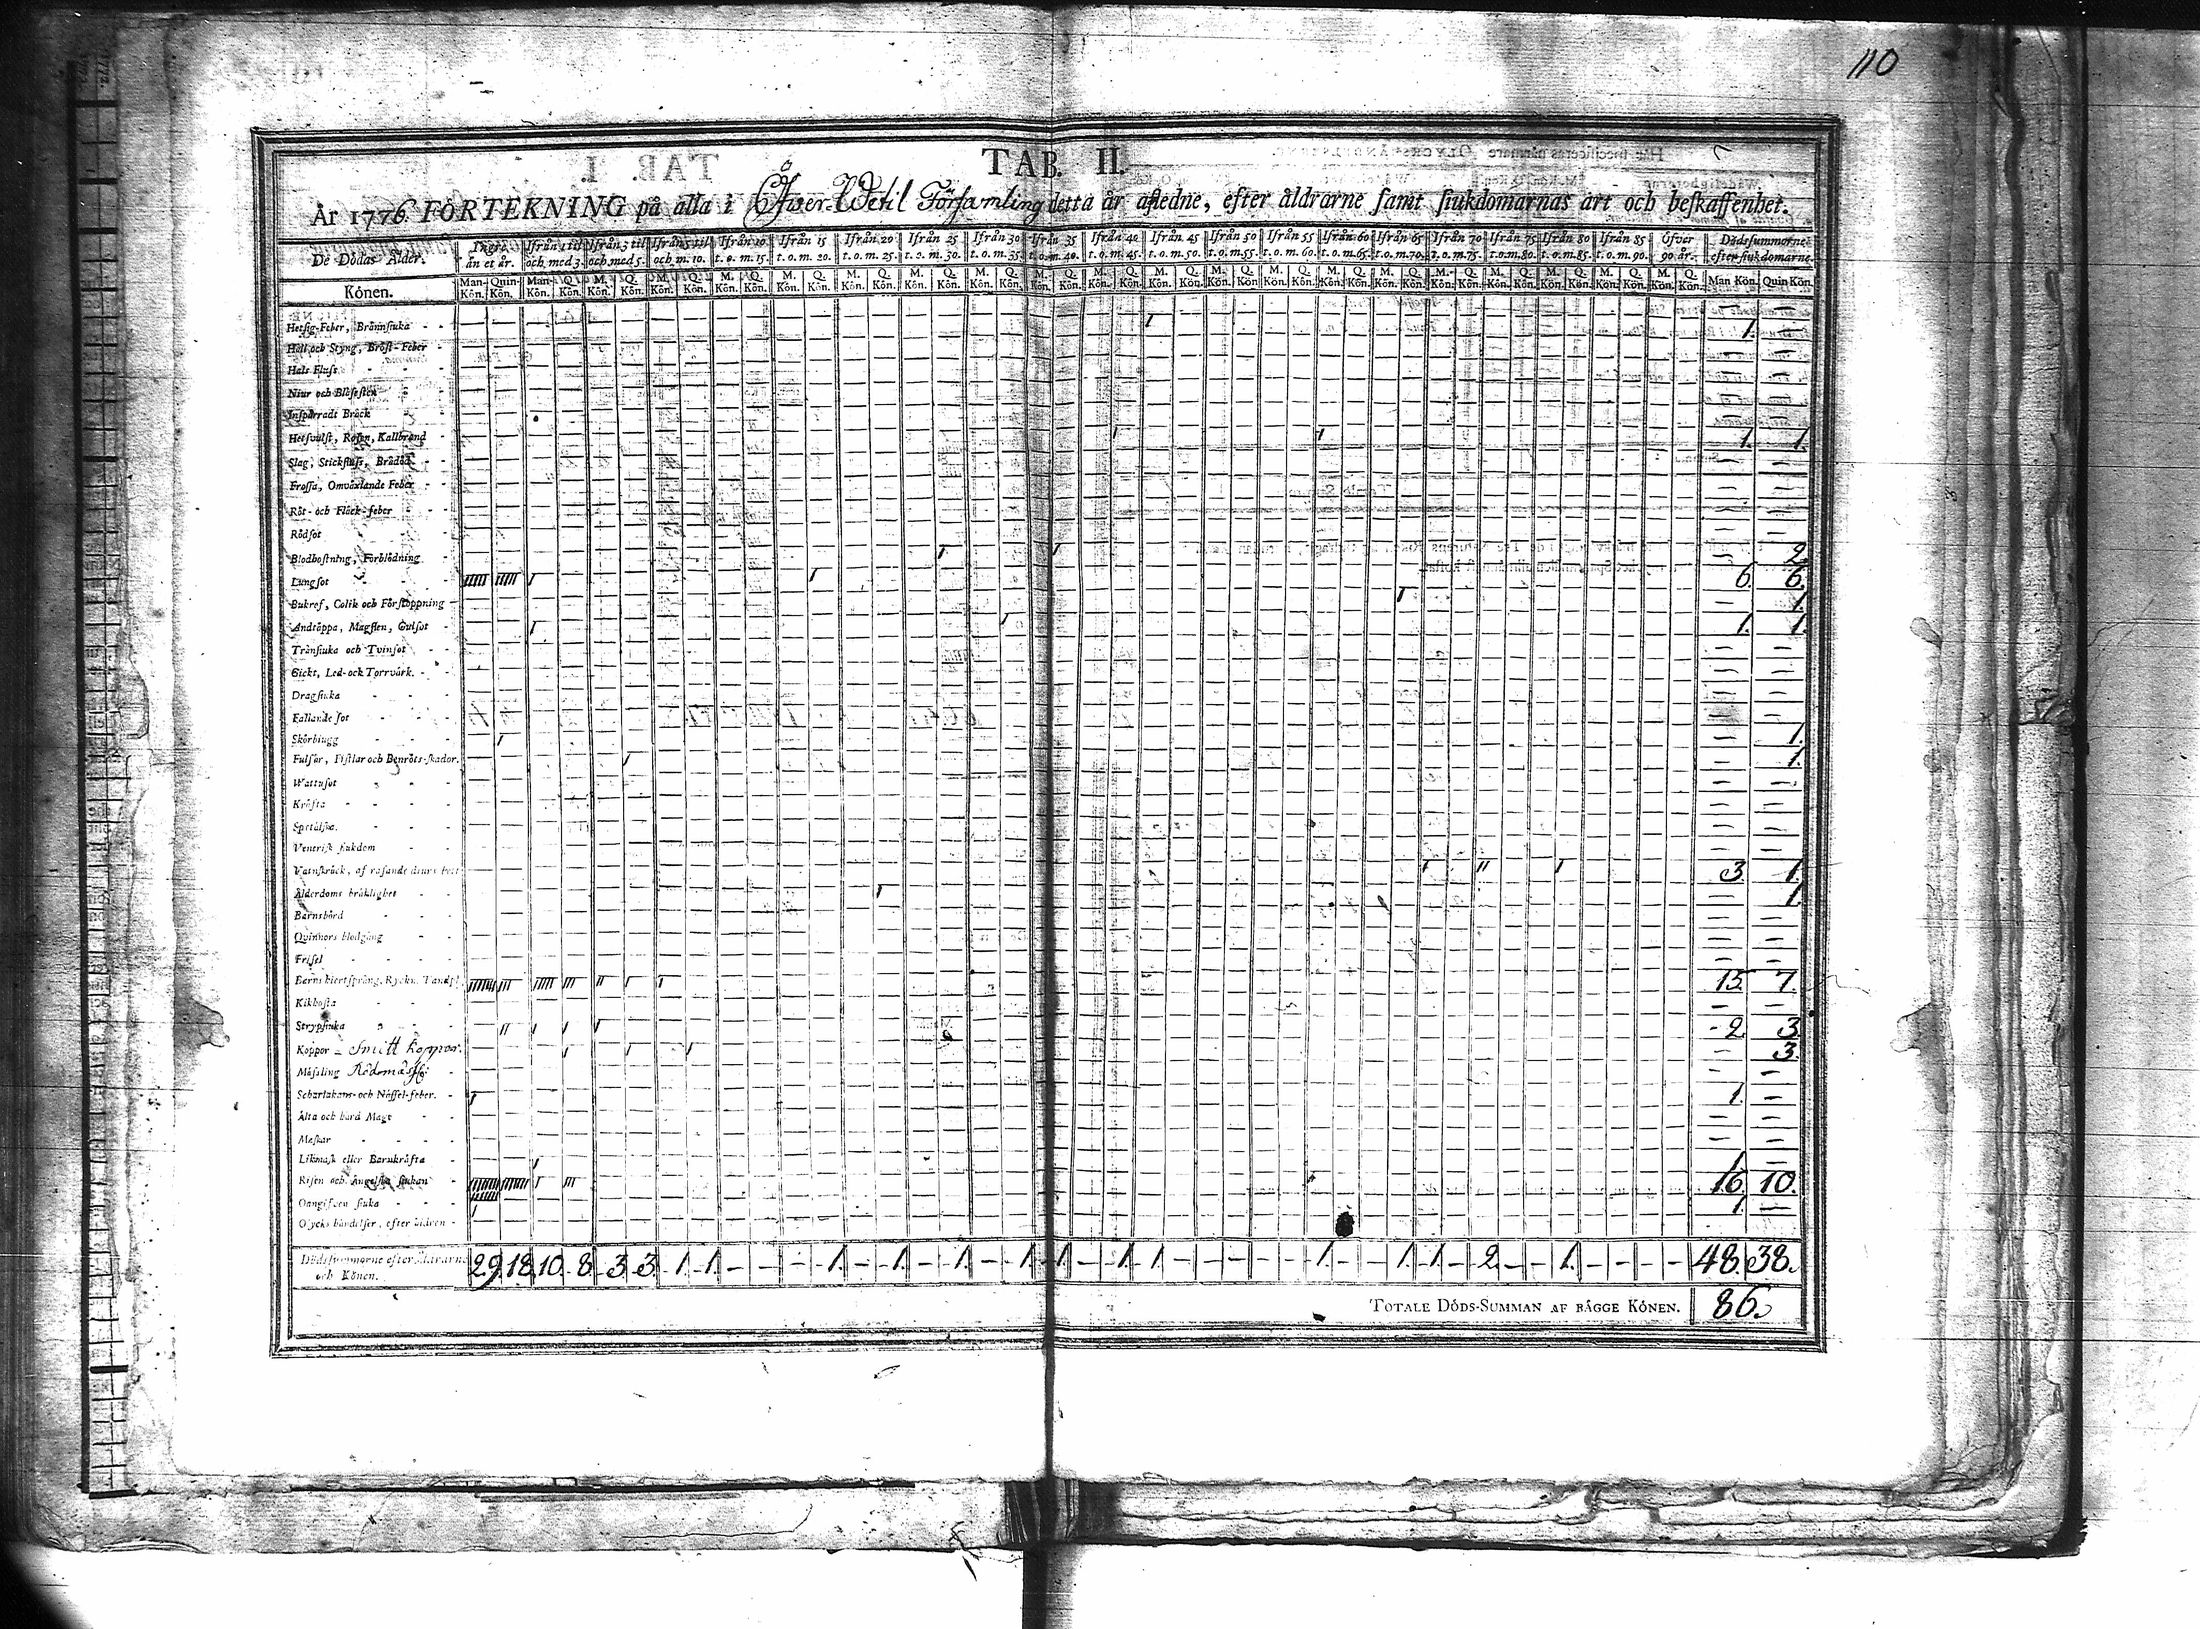 110
TAB. II.
År 1776 FÖRTEKNING på alla i Öfwer-Wetil Församling detta år afledne, efter åldrarne samt siukdomarnas art och beskaffenhet.
De Dödas Ålder. Yngre än et år. Ifrån 1 til och med 3. Ifrån 3 til och med 5. Ifrån 5 til och m. 10. Ifrån 10 t. o. m. 15. Ifrån 15 t. o. m. 20. Ifrån 20 t. o. m. 25. Ifrån 25 t. o. m. 30. Ifrån 30 t. o. m. 35. Ifrån 35 t. o. m. 40. Ifrån 40 t. o. m. 45. Ifrån 45 t. o. m. 50. Ifrån 50 t. o. m. 55. Ifrån 55 t. o. m. 60. Ifrån 60 t. o. m. 65. Ifrån 65 t. o. m. 70. Ifrån 70 t. o. m. 75. Ifrån 75 t. o. m. 80. Ifrån 80 t. o. m. 85. Ifrån 85 t. o. m. 90. Öfver 90 år. Dödssummorne efter siukdomarne.
Könen. Man Kön. Quin Kön. Man Kön. Q. Kön. M. Kön. Q. Kön. Man Kön. Quin Kön.
Hetsig-Feber, Brännsiuka 1 1.
Håll och Styng, Bröst-Feber
Hals Fluss
Niur och Blåsesten
Inspärradt Bråck
Hetsvulst, Rosen, Kallbrand 1 1 1. 1.
Slag, Stickfluss, Brådöd
Frossa, Omväxlande Feber
Röt- och Fläck-feber
Rödsot
Blodhostning, Förblödning 1 1 2
Lungsot 6. 6.
Bukref, Colik och Förstoppning 1 1.
Andtäppa, Magflen, Gulsot 1 1 1. 1.
Trånsiuka och Tvinsot
Gickt, Led- och Torrvärk.
Dragsiuka
Fallande sot
Skörbiugg 1 1.
Fulsår, Fistlar och Benröts-skador. 1 1.
Wattusot
Kräfta
Spetälska.
Venerisk siukdom
Vatnskräck, af rasande diurs bett 3 1.
Ålderdoms bräklighet 1 1.
Barnsbörd
Quinnors blodgång
Frisel
Barns hiertsprång, Ryckn. Tandsl. 15. 7.
Kikhosta
Strypsiuka 2 3
Koppor - Smitt koppor. 1 1 1 3.
Mässling
Scharlakans- och Nässel-feber. 1 1.
Älta och hård Mage
Maskar
Likmask eller Barnkräfta 1 1
Risen och Ängelska siukan 16 10.
Oangifven siuka 1 1.
Olyckshändelser, efter sidren
Dödssummorne efter åldrarne och Könen. 29. 18. 10. 8. 3. 3. 1. 1. - - - 1. - 1. - 1. - 1. 1. - 1. 1. - - - - 1. - - 1. 1. - 2. - - 1. - - - - - 48. 38.
TOTALE DÖDS-SUMMAN AF BÄGGE KÖNEN. 86.